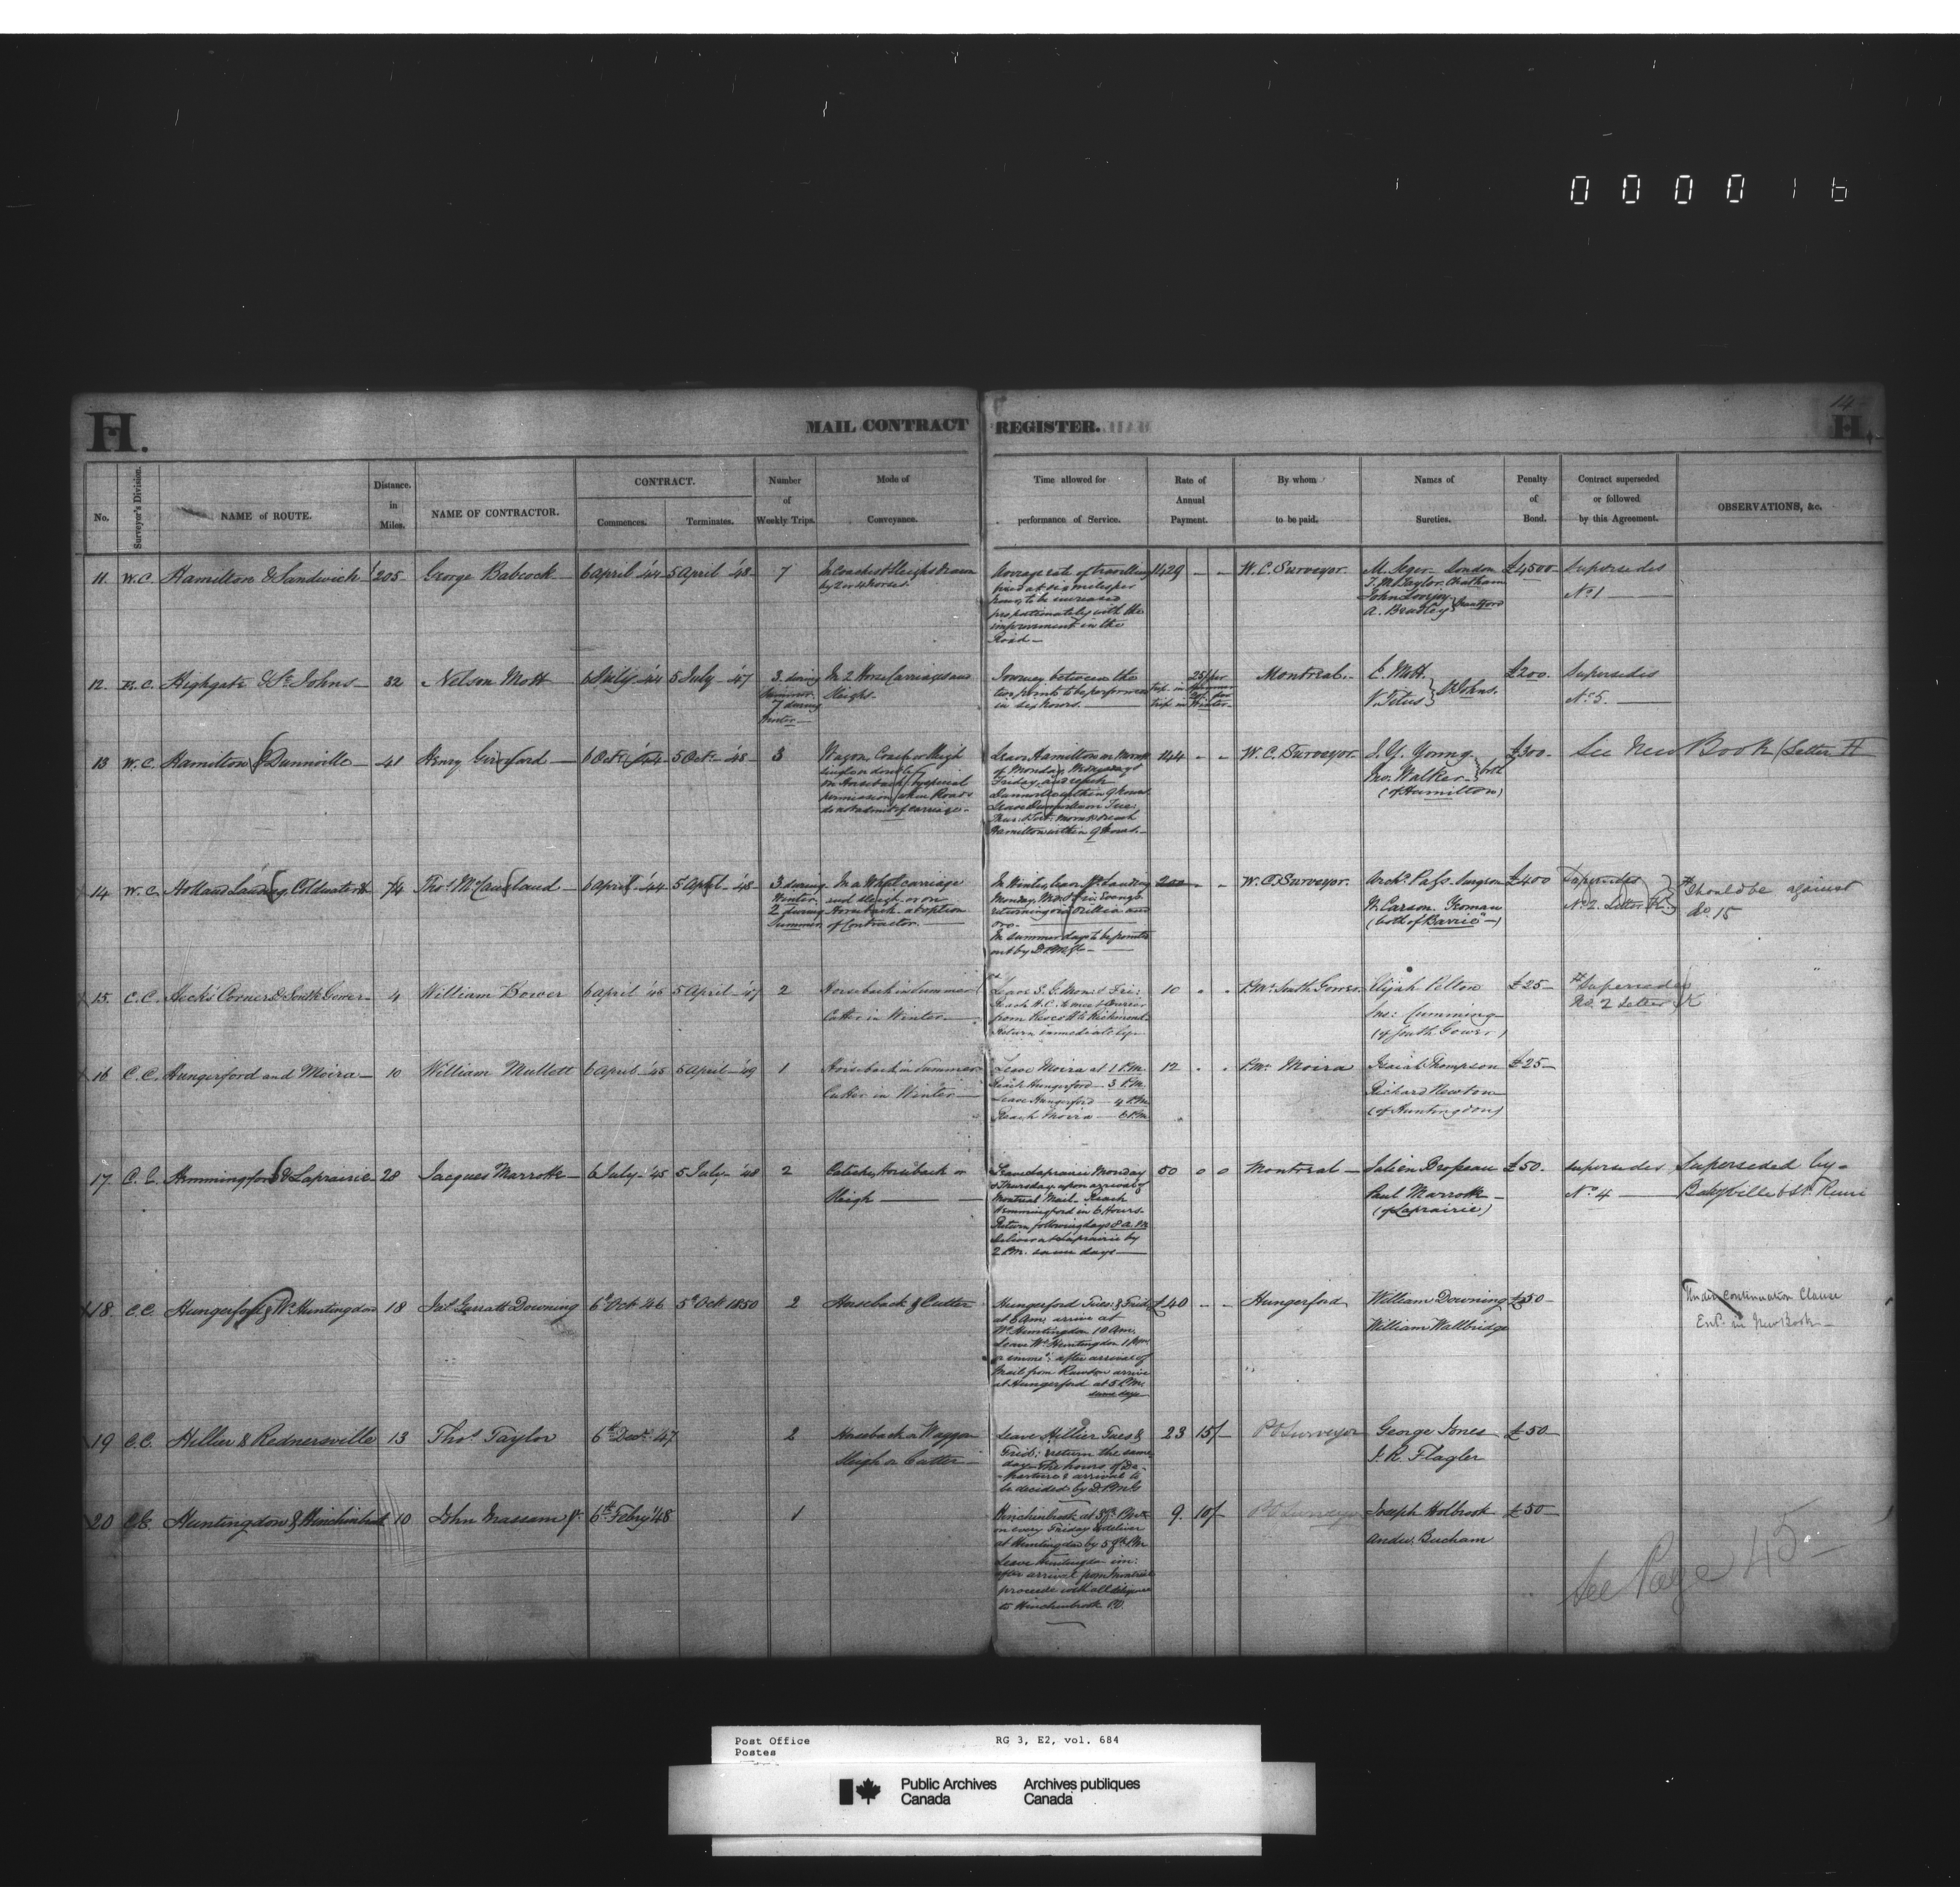 0 0 0 0 1 6
14
H.
MAIL CONTRACT REGISTER.
H.
No.
Surveyor's Division.
NAME of ROUTE.
Distance. in Miles.
NAME OF CONTRACTOR.
CONTRACT.
Commences.
Terminates.
Number of Weekly Trips.
Mode of Conveyance.
Time allowed for performance of Service.
Rate of Annual Payment.
By whom to be paid.
Names of Sureties.
Penalty of Bond.
Contract superseded or followed by this Agreement.
OBSERVATIONS, &c.
11. W.C. Hamilton & Sandwich 205 George Babcock 6 April '44 5 April '48 7
In Coaches & Sleighs drawn
by 2 or 4 horses.
Average rate of travelling
fixed at six miles per
hour, to be increased
proportionately with the
improvement in the
Road —
1429 - - W.C. Surveyor
M. Seger London
T. M. Taylor Chatham
John Lovejoy
A. Bradley } Brantford
£4500
Supersedes
No 1
12. C. Highgate & St Johns 32 Nelson Mott 6 July '44 5 July '47
3 during
Summer
7 during
Winter
In 2 Horse Carriages and
Sleighs.
Journey between the
two points to be performed
in six hours.
25/ per
trip in Summer
20/ per
trip in Winter
Montreal
C. Mott
V. Tetus } St Johns.
£200.
Supersedes
No 5.
13 W.C. Hamilton & Dunnville 41 Henry Gifford 6 Oct. '44 5 Oct. '48 3
Wagon, Coach or Sleigh
on Horseback by special
permission when Roads
do not admit of carriage.
Leave Hamilton on
Monday, Wednesday &
Friday, and reach
Dunnville within 9 hours
Leave Dunnville on Tues:
Thurs: & Sat: morn & reach
Hamilton within 9 hours.
144 - - W.C. Surveyor
J. Y. Young
Jno. Walker } both
(of Hamilton)
£300.
See New Book Letter H
14 W.C. Holland Landing, Coldwater & 74 Thos McCausland 6 April '44 5 April '48
3 during
Winter
2 during
Summer
In a Whl carriage
and sleigh, or on
Horseback at option
of Contractor.
In Winter, leave H. Landing
Monday, Wed & Fri. Evengs
returning via Orillia and
Oro.
In summer days to be pointed
out by D.P.M.G.
200 - - W.C. Surveyor.
Archd Pass. Surgeon
W. Carson. Yeoman
(both of Barrie)
£400
Supersedes
No 2. Letter K.
Should be against
do 15
15. C.C. Heck's Corners & South Gower 4 William Bower 6 April '45 5 April '47 2
Horseback in Summer
Cutter in Winter
Leave S. G. Mon: & Fri:
Reach H.C. to meet Courier
from Prescott to Richmond
Return immediately
10 " " P.Mr South Gower.
Elijah Pelton
Jas: Cumming
(of South Gower)
£25
Supersedes
No. 2 Letter K
16 C.C. Hungerford and Moira 10 William Mullett 6 April '45 5 April '49 1
Horseback in Summer
Cutter in Winter
Leave Moira at 1 P.M.
Reach Hungerford 3 P.M.
Leave Hungerford 4 P.M.
Reach Moira 6 P.M.
12 " " P.Mr Moira
Isaiah Thompson
Richard Newton
(of Huntingdon)
£25
17. C.C. Hemmingford & Laprairie 28 Jacques Marrotte 6 July '45 5 July '48 2
Caleche, Horseback or
Sleigh
Leave Laprairie Monday
& Thursday, upon arrival of
Montreal Mail. Reach
Hemmingford in 6 Hours.
Return following days 8 A.M.
deliver at Laprairie by
2 P.M. same days
50 0 0 Montreal
Julien Brosseau
Paul Marrotte
(of Laprairie)
£50.
Supersedes
No 4
Superseded by
Babyville & St Remi
18 C.C. Hungerford & W. Huntingdon 18 Jas Garratt Downing 6 Oct '46 5 Oct 1850 2
Horseback & Cutter
Hungerford Tues: & Frid:
at 6 Am. arrive at
W. Huntingdon 10 Am.
Leave W. Huntingdon 1 Pm
or imme: after arrival of
Mail from Rawdon arrive
at Hungerford at 5 P.M.
same days
£40 - - Hungerford
William Downing
William Wallbridge
£50
Under Continuation Clause
Entd in New Book
19 C.C. Hillier & Rednersville 13 Thos Taylor 6th Decr '47 2
Horseback or Waggon
Sleigh or Cutter
Leave Hillier Tues &
Frid: & return the same
day. The hours of De-
parture & arrival to
be decided by D.P.M.G
23 15/- P O Surveyor
George Jones
J. R. Flagler
£50
20 C.C. Huntingdon & Hinchinbrook 10 John Massam Jr 6th Febry '48 1
Hinchinbrook at
on every Friday & deliver
at Huntingdon by
Leave Huntingdon im:
after arrival from Montreal
proceed with all diligence
to Hinchinbrook P.O.
9. 10/- P O Surveyor
Joseph Holbrook
Andw. Bucham
£50
See Page 45
Post Office
Postes
RG 3, E2, vol. 684
Public Archives
Canada
Archives publiques
Canada